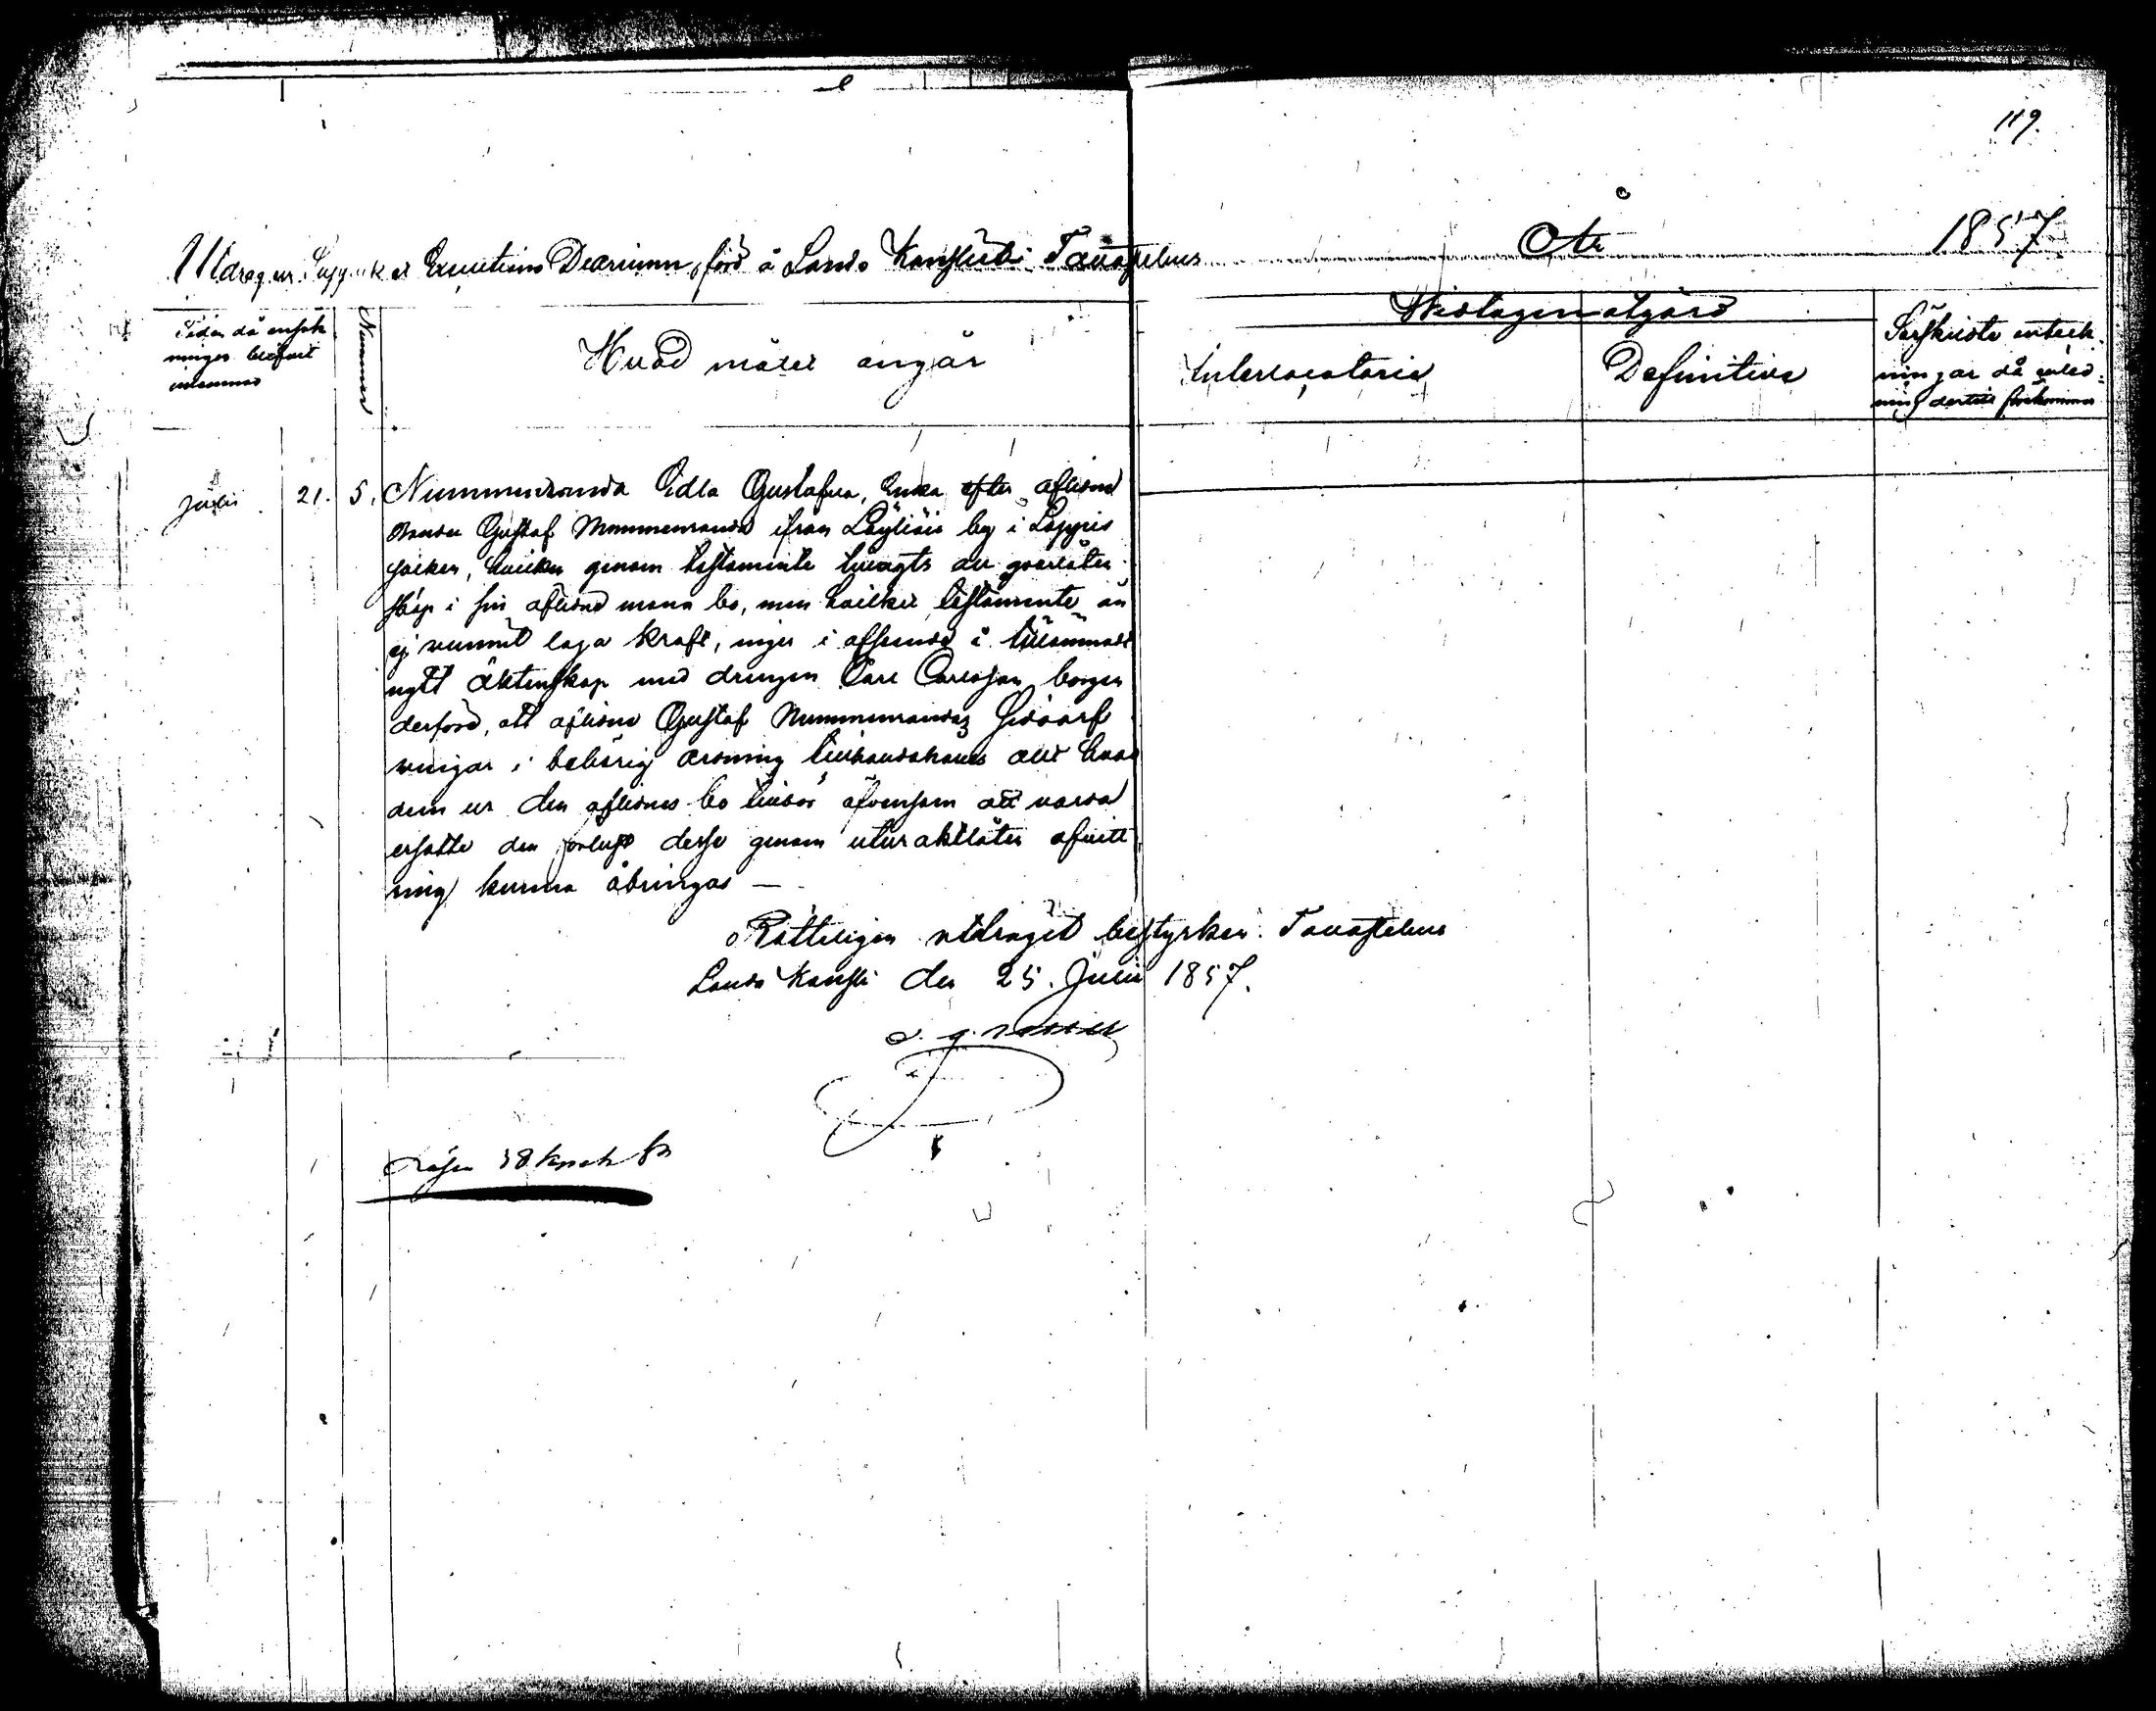 119.
Utdrag ur Suppliks et Executions Diarium, förd å Lands Kansliet i Tavastehus År 1857
Tiden då ansök
ningen blifvit
inlemnad
Nummer
Hvad målet angår
Widtagen åtgärd
Interlocutorie
Definitive
Särskilda anteck-
ningar då anled-
ning dertill förekommer
Julii 21. 5. Nummenranda Edla Gustafva, Enka efter aflidne
bonden Gustaf Nummenranda ifrån Läyliäis by i Loppis
socken, hvilken genom testamente tillagts
i sin aflidne mans bo, men hvilket testamente än
ej vunnit laga kraft, inger i afseende å tillämnadt
nytt äktenskap med drengen Carl Carlsson borgen
derföre, att aflidne Gustaf Nummenrandas Sidoarf
vingar i behörig ordning tillhandahålles allt hvad
dem ur den aflidnes bo tillhör äfvensom att varda
ersatte den förlust desse genom uturaktlåten afvitt
ring kunna åbringas —
Rätteligen utdraget bestyrker. Tavastehus
Lands Kansli den 25. Julii 1857.
Lösen 58 kopek Sr